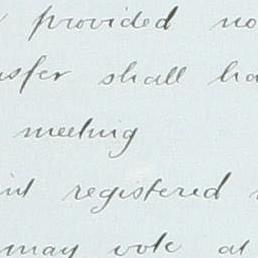 provided no
nsfer shall ha
meeting
int registered
may vote at